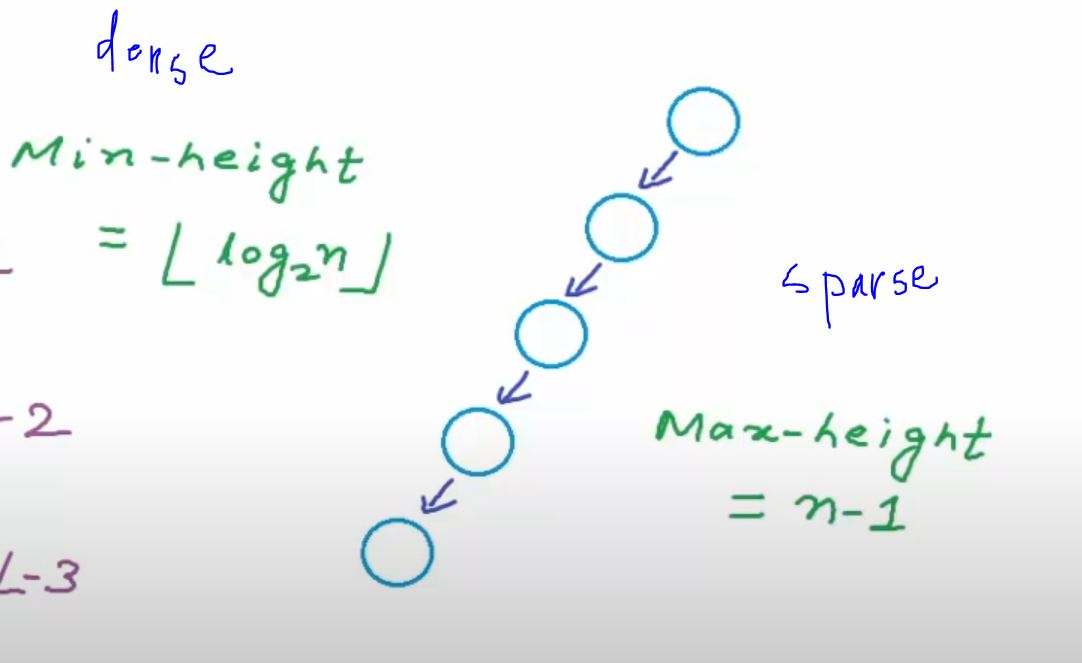 dense
Min-height
= ⌊ log₂n ⌋
sparse
-2
Max-height
= n-1
L-3